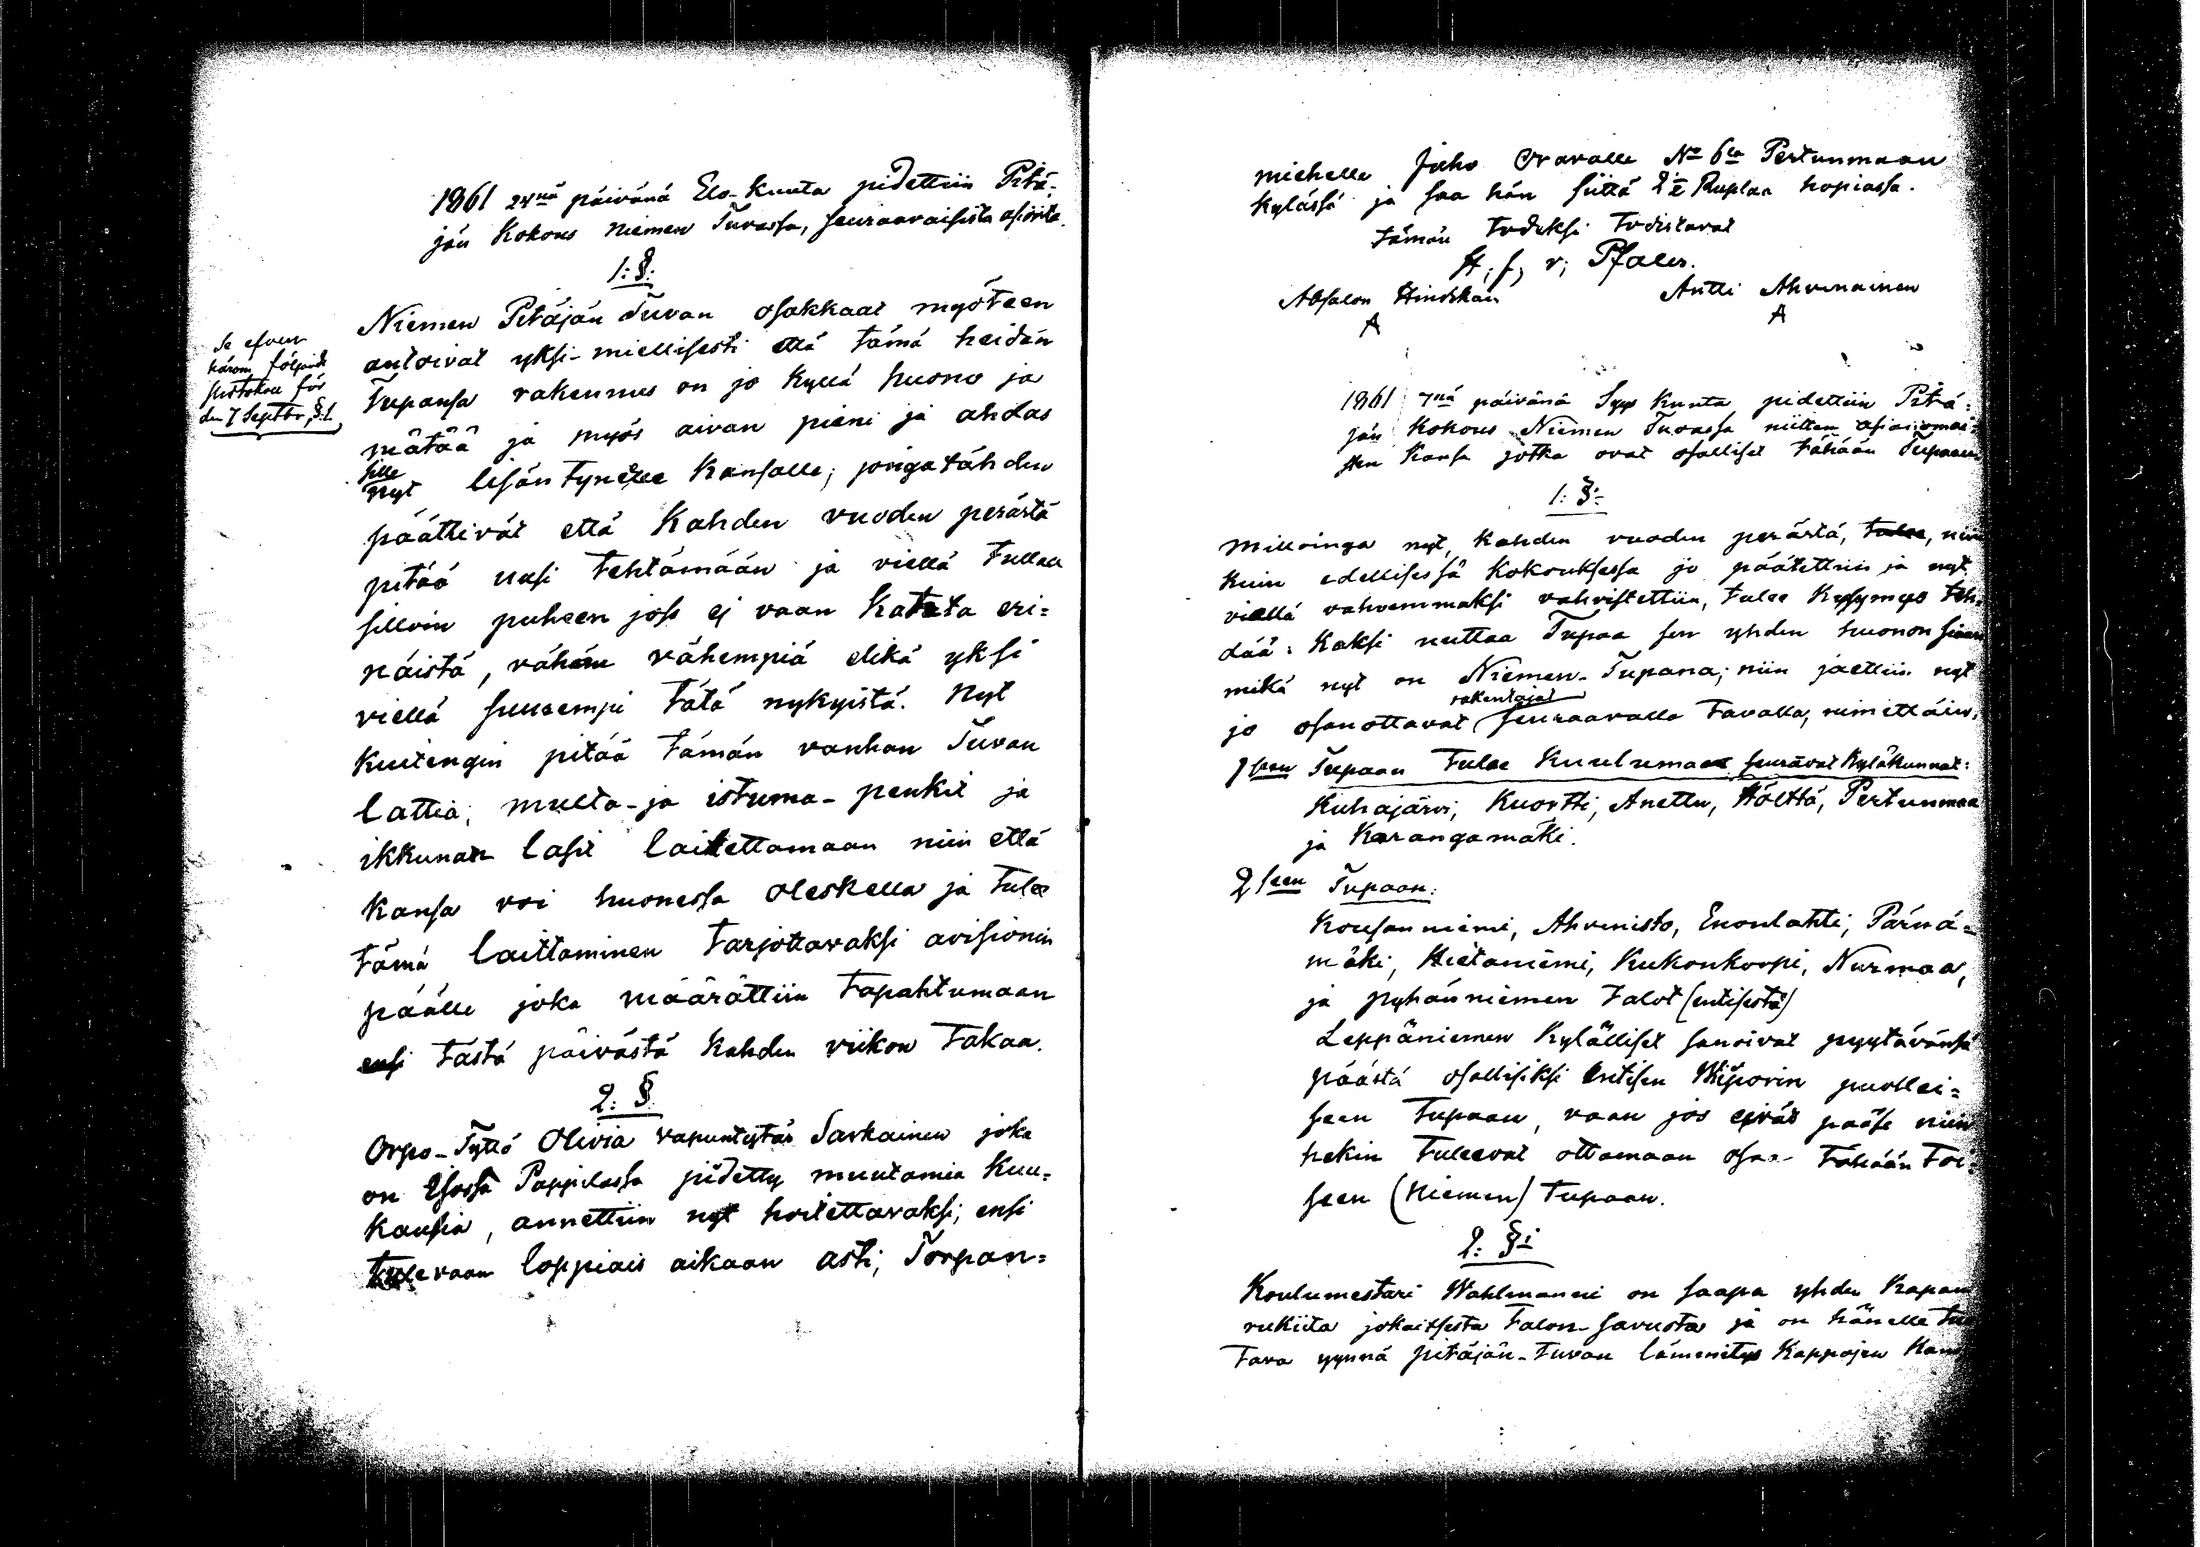 1861 24nä päivänä Elo-Kuuta pidettiin Pitä-
jän Kokous Niemen Tuvassa, seuraavaisista asioista.
1: §:
Niemen Pitäjän Tuvan osakkaat myöteen
antoivat yksi-miellisesti että tämä heidän
Tupansa rakennus on jo kyllä huono ja
mätää ja myös aivan pieni ja ahdas
sille
nyt lisäntynelle Kansalle; jonga tähden
päättivät että Kahden vuoden perästä
pitää uusi tehtämään ja viellä tullaa
silloin puheen jos ej vaan Katsta eri=
näistä, vähän vähempiä elikä yksi
viellä suurempi tätä nykyistä. Nyt
Kuitengin pitää tämän vanhan Tuvan
lattia, multa- ja istuma-penkit ja
ikkunan lasit laitettamaan niin että
Kansa voi huonessa oleskella ja tulee
tämä laittaminen tarjottavaksi avisionin
päälle joka määrättiin tapahtumaan
ensi tästä päivästä Kahden viikon takaa.
2: §
Orpo-Tyttö Olivia vapuntytär Sarkainen joka
on Esossa Pappilassa pidetty muutamia Kuu=
kausia, annettiin nyt hoitettavaksi, ensi
tulevaan loppiais aikaan asti, Torpan=
Se efven
härom följande
protokoll för
den 7 Septbr, §.1.
miehelle Juho Oravalle No 6la Pertunmaan
Kylässä ja saa hän siitä 2 Ruplaa hopiassa.
Tämän todeksi todistavat
H. f, v; Pfaler.
Absalon Hindikäin Antti Ahvenainen
1861 7nä päivänä Syys Kuuta pidettiin Pitä=
jän Kokous Niemen Tuvassa niitten asianomai=
sten Kansa jotka ovat osalliset tähään Tupaan
1: §:
Milloinga nyt, kahden vuoden perästä, tulee, niin
kuin edellisessä Kokouksessa jo päätettiin ja nyt
viellä vahvemmaksi vahvistettiin, tulee Kysymys teh=
dää: Kaksi uuttaa Tupaa sen yhden huonon siaan
mikä nyt on Niemen-Tupana; niin jaettiin nyt
rakentajat
jo osanottavat seuraavalla tavalla, nimittäin,
1seen Tupaan tulee Kuulumaan seuravat Kyläkunnat:
Kuhajärvi, Kuortti, Anettu, Höltlä, Pertunmaa
ja Karangamäki.
2seen Tupaan:
Kousanniemi, Ahvenisto, Enonlahti, Pärnä=
mäki, Hietaniemi, Kukonkorpi, Nurmaa,
ja pyhänniemen talot (entisestä)
Leppäniemen Kylälliset sanoivat pyytävänsä
päästä osallisiksi entisen Wiiporin puollei=
seen Tupaan, vaan jos eivät pääse niin
hekin tuleevat ottamaan osaa tähään toi=
seen (Niemen) Tupaan.
2: §:
Koulumestari Wahlmanni on saapa yhden Kapan
rukiita jokaitsesta talon-savusta ja on hänelle
tava yynnä pitäjän-tuvan lämmitys Kappojen